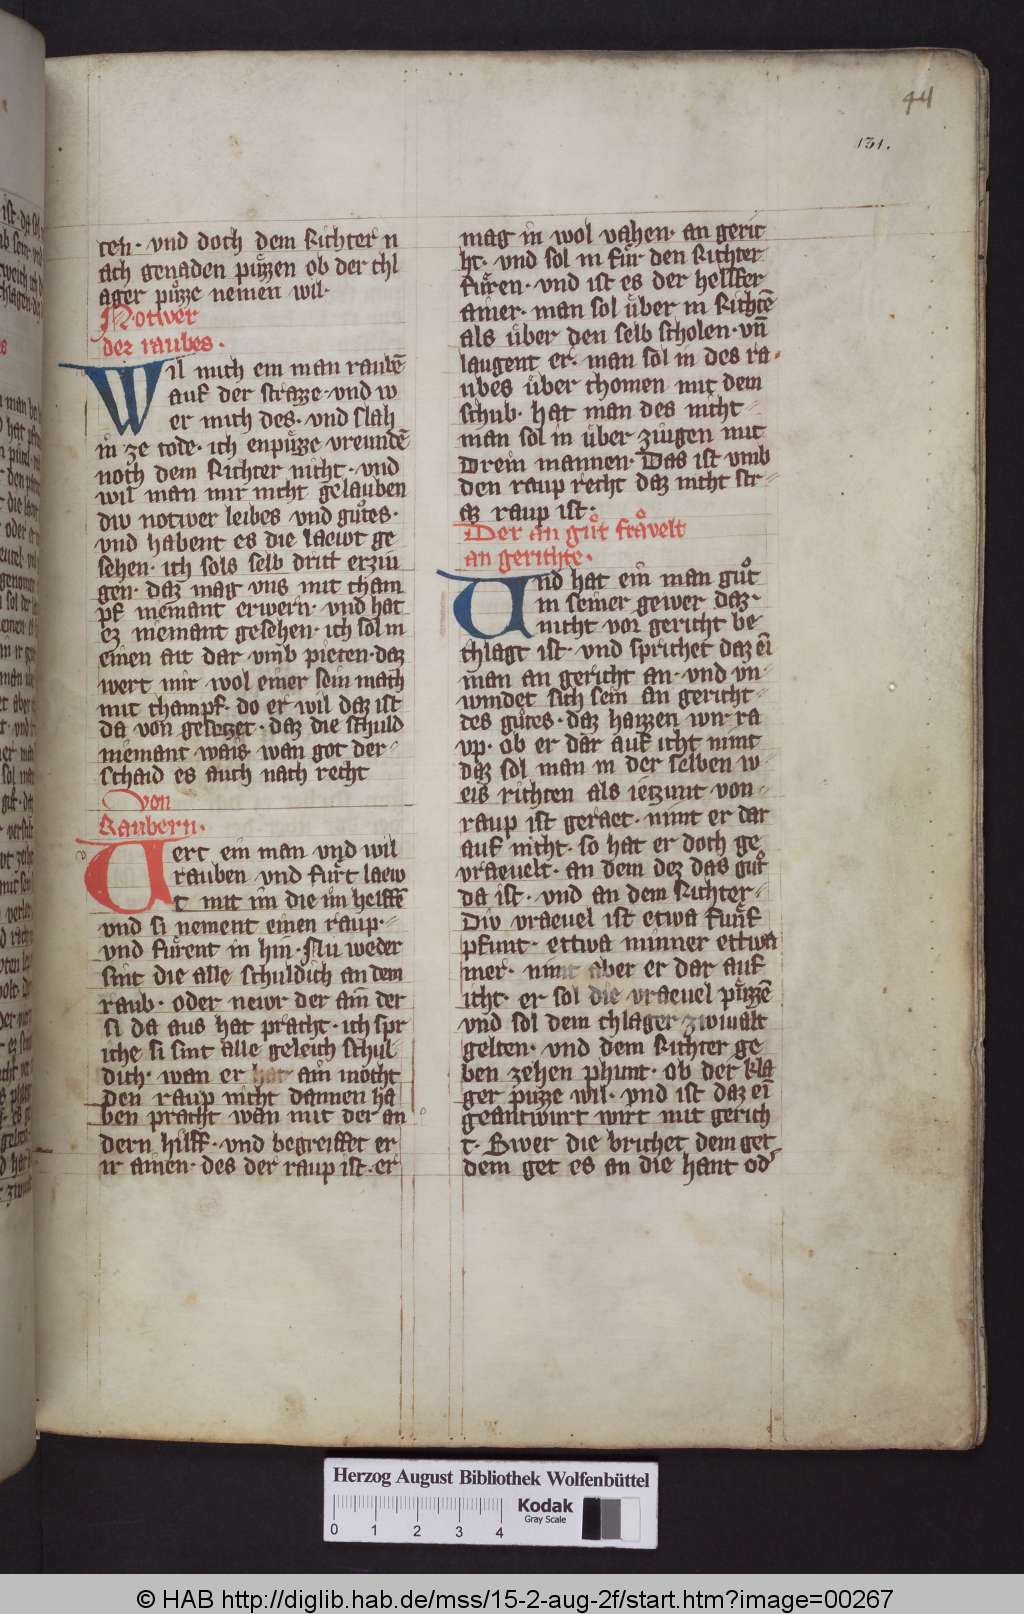 44
131.
ten · vnd doch dem Richter n
ach genaden puͤzzen ob der chl
ager puͤzze nemen wil·
Notwer
der raubes ·
Wil mich ein man raubē
auf der strazze · vnd w
er mich des · vnd slah
in ze tode · ich enpuͤzze vreundē
noch dem Richter nicht · vnd
wil man mir nicht gelauben
div notwer leibes vnd guͦtes·
vnd habent es die laewt ge
sehen · ich sols selb dritt erziu
gen · daz mag vns mit cham
pf niemant erwern · vnd hat
ez niemant gesehen · ich sol in
einen ait dar vmb pieten · daz
wert mir wol einer sein mach
mit champf · do er wil daz ist
da von gesetzet · daz die schuld
niemant wais wan got der
schaid es auch nach recht
von
Raubern·
Vert ein man vnd wil
rauben vnd fuͤrt laew
t mit im die im helffē
vnd si nement einen raup·
vnd fuͤrent in hin · Nu weder
sint die alle schuldich an dem
raub · oder newr der ain der
si da aus hat pracht · ich spr
iche si sint alle geleich schul
dich · wan er hat ain mocht
den raup nicht dannen ha
ben pracht wan mit der an
dern hilff · vnd begreiffet er
ir ainen · des der raup ist · er
mag in wol vahen · an geric
ht · vnd sol in fuͤr den Richter
fuͤren · vnd ist es der helffer
ainer · man sol uͤber in Richtē
als uͤber den selb scholen · vn̄
laugent er · man sol in des ra
ubes uͤber chomen mit dem
schub · hat man des nicht
man sol in uͤber ziugen mit
Drein mannen · Das ist vmb
den raup recht daz nicht str
az raup ist ·
Der an guͦt fraͤvelt
an gerichte ·
Vnd hat ein man guͦt
in seiner gewer daz
nicht vor gericht be
chlagt ist · vnd sprichet daz ei
man an gericht an · vnd vn
windet sich sein an gericht
des guͦtes · daz haizzen wir ra
vp · ob er dar auf icht nimt
daz sol man in der selben w
eis richten als ietzunt von
raup ist geraet · nimt er dar
auf nicht · so hat er doch ge
vraeuelt · an dem dez das guͦt
da ist · vnd an dem Richter
Div vraeuel ist etwa funf
pfunt · ettwa minner ettwa
mer · nimt aber er dar auf
icht · er sol die vraeuel puͤzzē
vnd sol dem chlager zwiualt
gelten · vnd dem Richter ge
ben zehen phunt · ob der kla
ger puzze wil · vnd ist daz ei
geantwurt wirt mit gerich
t · Swer die brichet dem get
dem get es an die hant od
Herzog August Bibliothek Wolfenbüttel
0 1 2 3 4
Kodak
Gray Scale
© HAB http://diglib.hab.de/mss/15-2-aug-2f/start.htm?image=00267